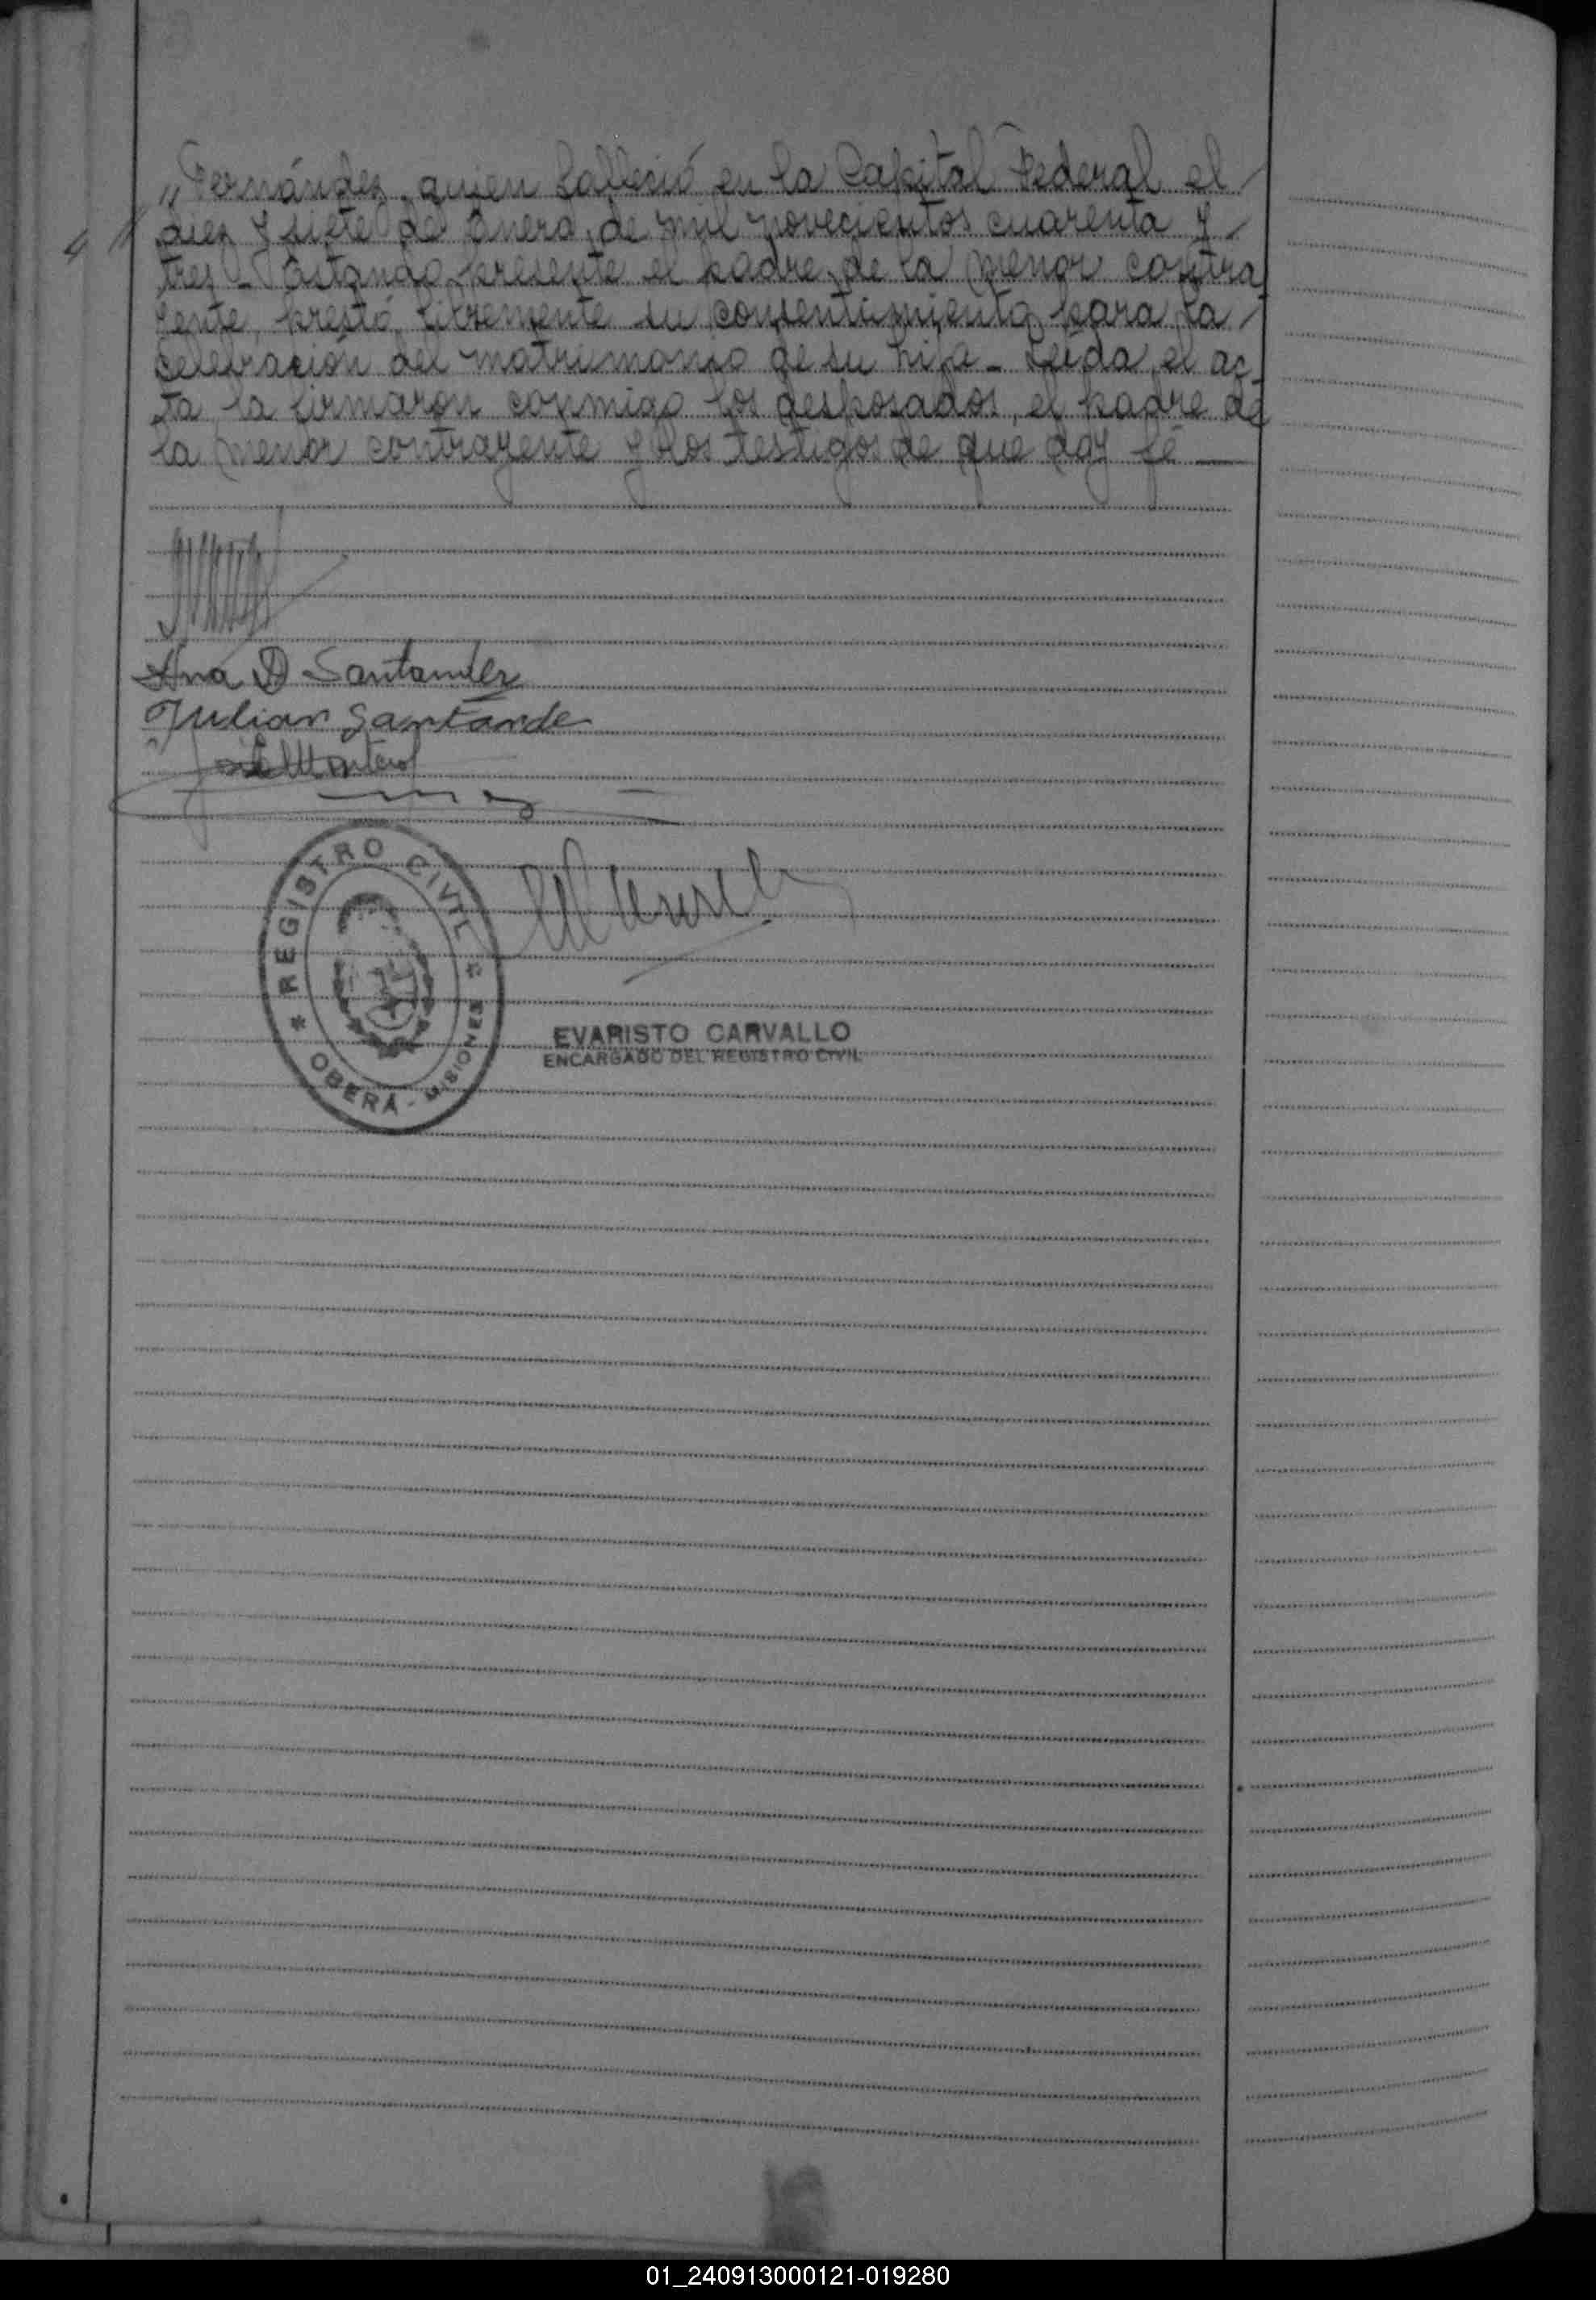 „ Fernández, quien falleció en la Capital Federal el /
diez y siete de Enero, de mil novecientos cuarenta y /
tres - Estando presente el padre de la menor contra
yente, prestó libremente su consentimiento para la /
celebración del matrimonio de su hija - Leída el ac-
ta la firmaron conmigo los desposados, el padre de
la menor contrayente y los testigos de que doy fé —
Ana D Santander
Julian Santande
José Montero
REGISTRO CIVIL
OBERÁ - MISIONES
EVARISTO CARVALLO
ENCARGADO DEL REGISTRO CIVIL
01_240913000121-019280